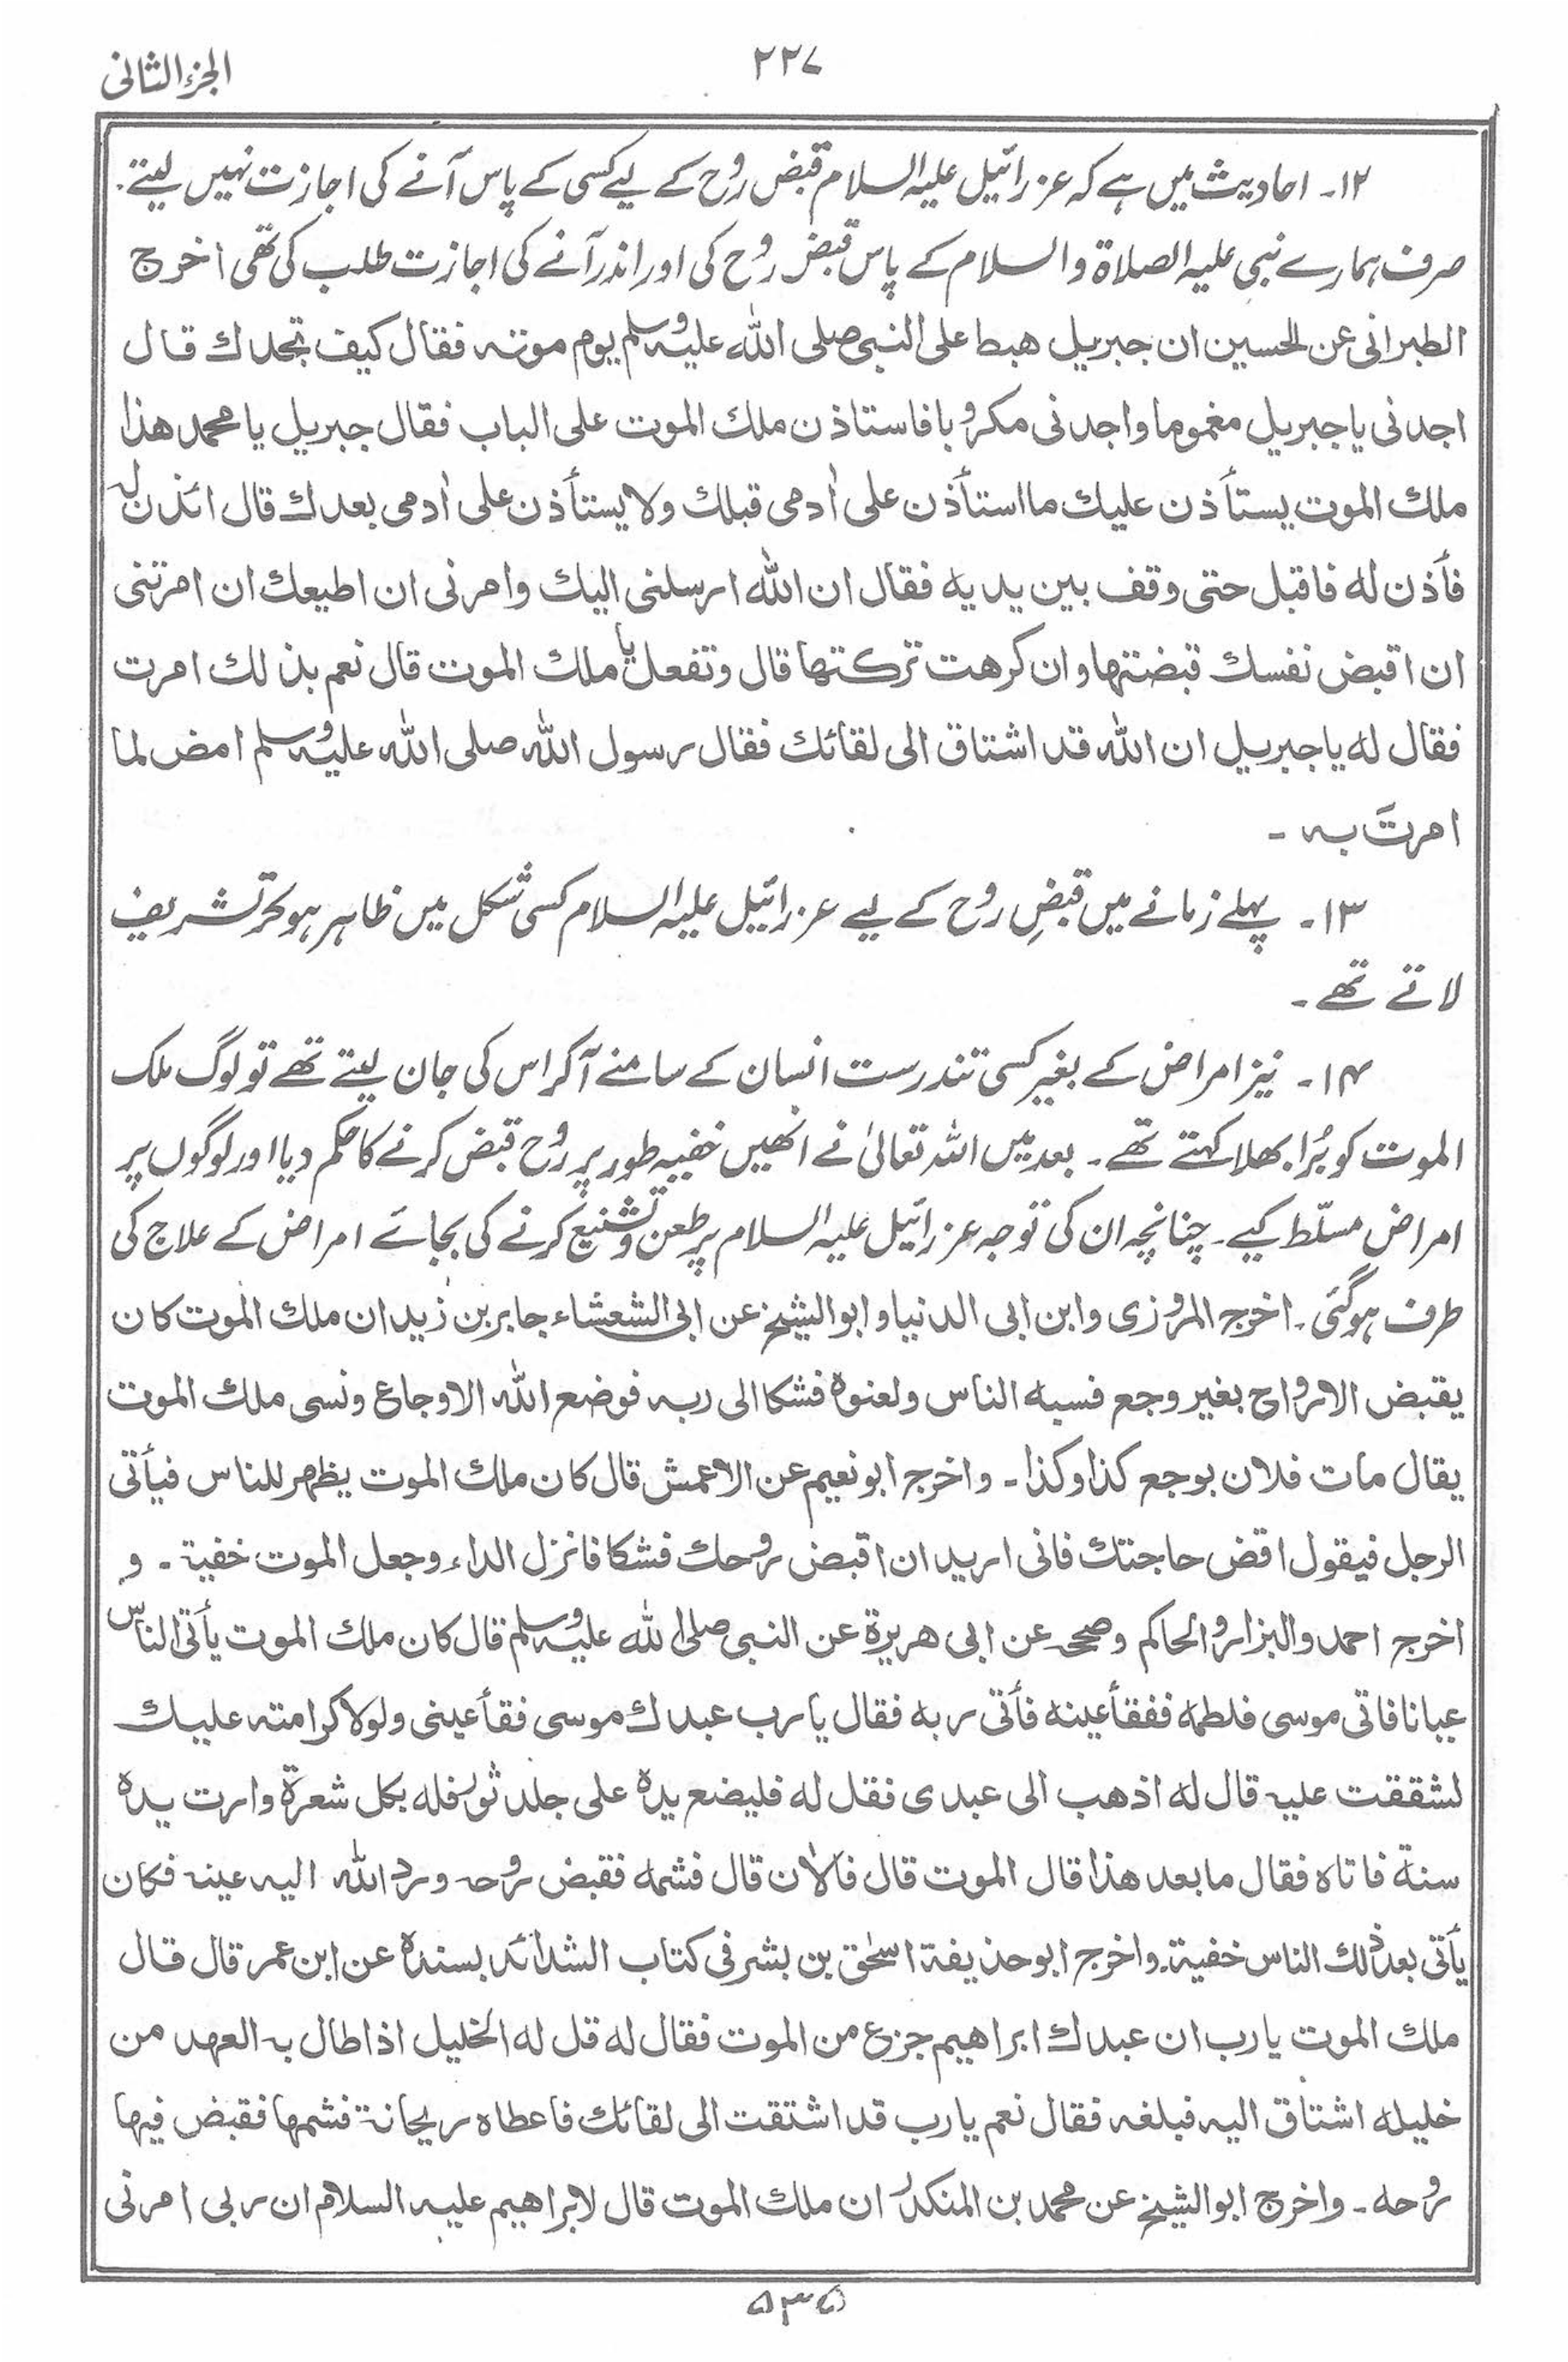 الجزء الثانی
۲۲۷
۱۲۔ احادیث میں ہے کہ عزرائیل علیہ السلام قبض روح کے لیے کسی کے پاس آنے کی اجازت نہیں لیتے.
صرف ہمارے نبی علیہ الصلاۃ والسلام کے پاس قبض روح کی اور اندر آنے کی اجازت طلب کی تھی اخرج
الطبرانی عن الحسین ان جبریل ھبط علی النبی صلی اللہ علیہ وسلم یوم موتہ فقال کیف تجدك قال
اجدنی یا جبریل مغموما واجدنی مکروبا فاستاذن ملك الموت علی الباب فقال جبریل یا محمد ھذا
ملك الموت یستأذن علیك ما استأذن علی اٰدمی قبلك ولا یستأذن علی اٰدمی بعدك قال ائذن له
فأذن له فاقبل حتی وقف بین یدیه فقال ان اللہ ارسلنی الیك وامرنی ان اطیعك ان امرتنی
ان اقبض نفسك قبضتھا وان کرھت ترکتھا قال وتفعل یا ملك الموت قال نعم بذلك امرت
فقال له یا جبریل ان اللہ قد اشتاق الی لقائك فقال رسول اللہ صلی اللہ علیہ وسلم امض لما
امرتَ بہ ۔
۱۳۔ پہلے زمانے میں قبضِ روح کے لیے عزرائیل علیہ السلام کسی شکل میں ظاہر ہوکر تشریف
لاتے تھے ۔
۱۴۔ نیز امراض کے بغیر کسی تندرست انسان کے سامنے آکر اس کی جان لیتے تھے تو لوگ ملک
الموت کو بُرا بھلا کہتے تھے ۔ بعد میں اللہ تعالیٰ نے انھیں خفیہ طور پر رُوح قبض کرنے کا حکم دیا اور لوگوں پر
امراض مسلّط کیے ۔ چنانچہ ان کی توجہ عزرائیل علیہ السلام پر طعن و تشنیع کرنے کی بجائے امراض کے علاج کی
طرف ہوگئی ۔ اخرج المروزی وابن ابی الدنیا وابو الشیخ عن ابی الشعشاء جابر بن زید ان ملك الموت کان
یقبض الارواح بغیر وجع فسبه الناس ولعنوہ فشکا الی ربہ فوضع اللہ الاوجاع ونسی ملك الموت
یقال مات فلان بوجع کذا وکذا ۔ واخرج ابو نعیم عن الاعمش قال کان ملك الموت یظھر للناس فیأتی
الرجل فیقول اقض حاجتك فانی ارید ان اقبض روحك فشکا فانزل الداء وجعل الموت خفیة ۔ و
اخرج احمد والبزار والحاکم وصححہ عن ابی ھریرة عن النبی صلی اللہ علیہ وسلم قال کان ملك الموت یأتی الناس
عیانا فاتی موسی فلطمه ففقأ عینه فأتی ربه فقال یا رب عبدك موسی فقأ عینی ولولا کرامتہ علیك
لشققت علیہ قال له اذھب الی عبدی فقل له فلیضع یدہ علی جلد ثور فله بکل شعرة وارت یدہ
سنة فاتاہ فقال ما بعد ھذا قال الموت قال فالاٰن قال فشمه فقبض روحہ ورد اللہ الیہ عینہ فکان
یأتی بعد ذلك الناس خفیة۔ واخرج ابو حذیفة اسحٰق بن بشر فی کتاب الشدائد بسندہ عن ابن عمر قال قال
ملك الموت یا رب ان عبدك ابراھیم جزع من الموت فقال له قل له الخلیل اذا طال بہ العھد من
خلیله اشتاق الیہ فبلغہ فقال نعم یا رب قد اشتقت الی لقائك فاعطاہ ریحانة فشمھا فقبض فیھا
روحه ۔ واخرج ابو الشیخ عن محمد بن المنکدر ان ملك الموت قال لابراھیم علیہ السلام ان ربی امرنی
۵۳۵